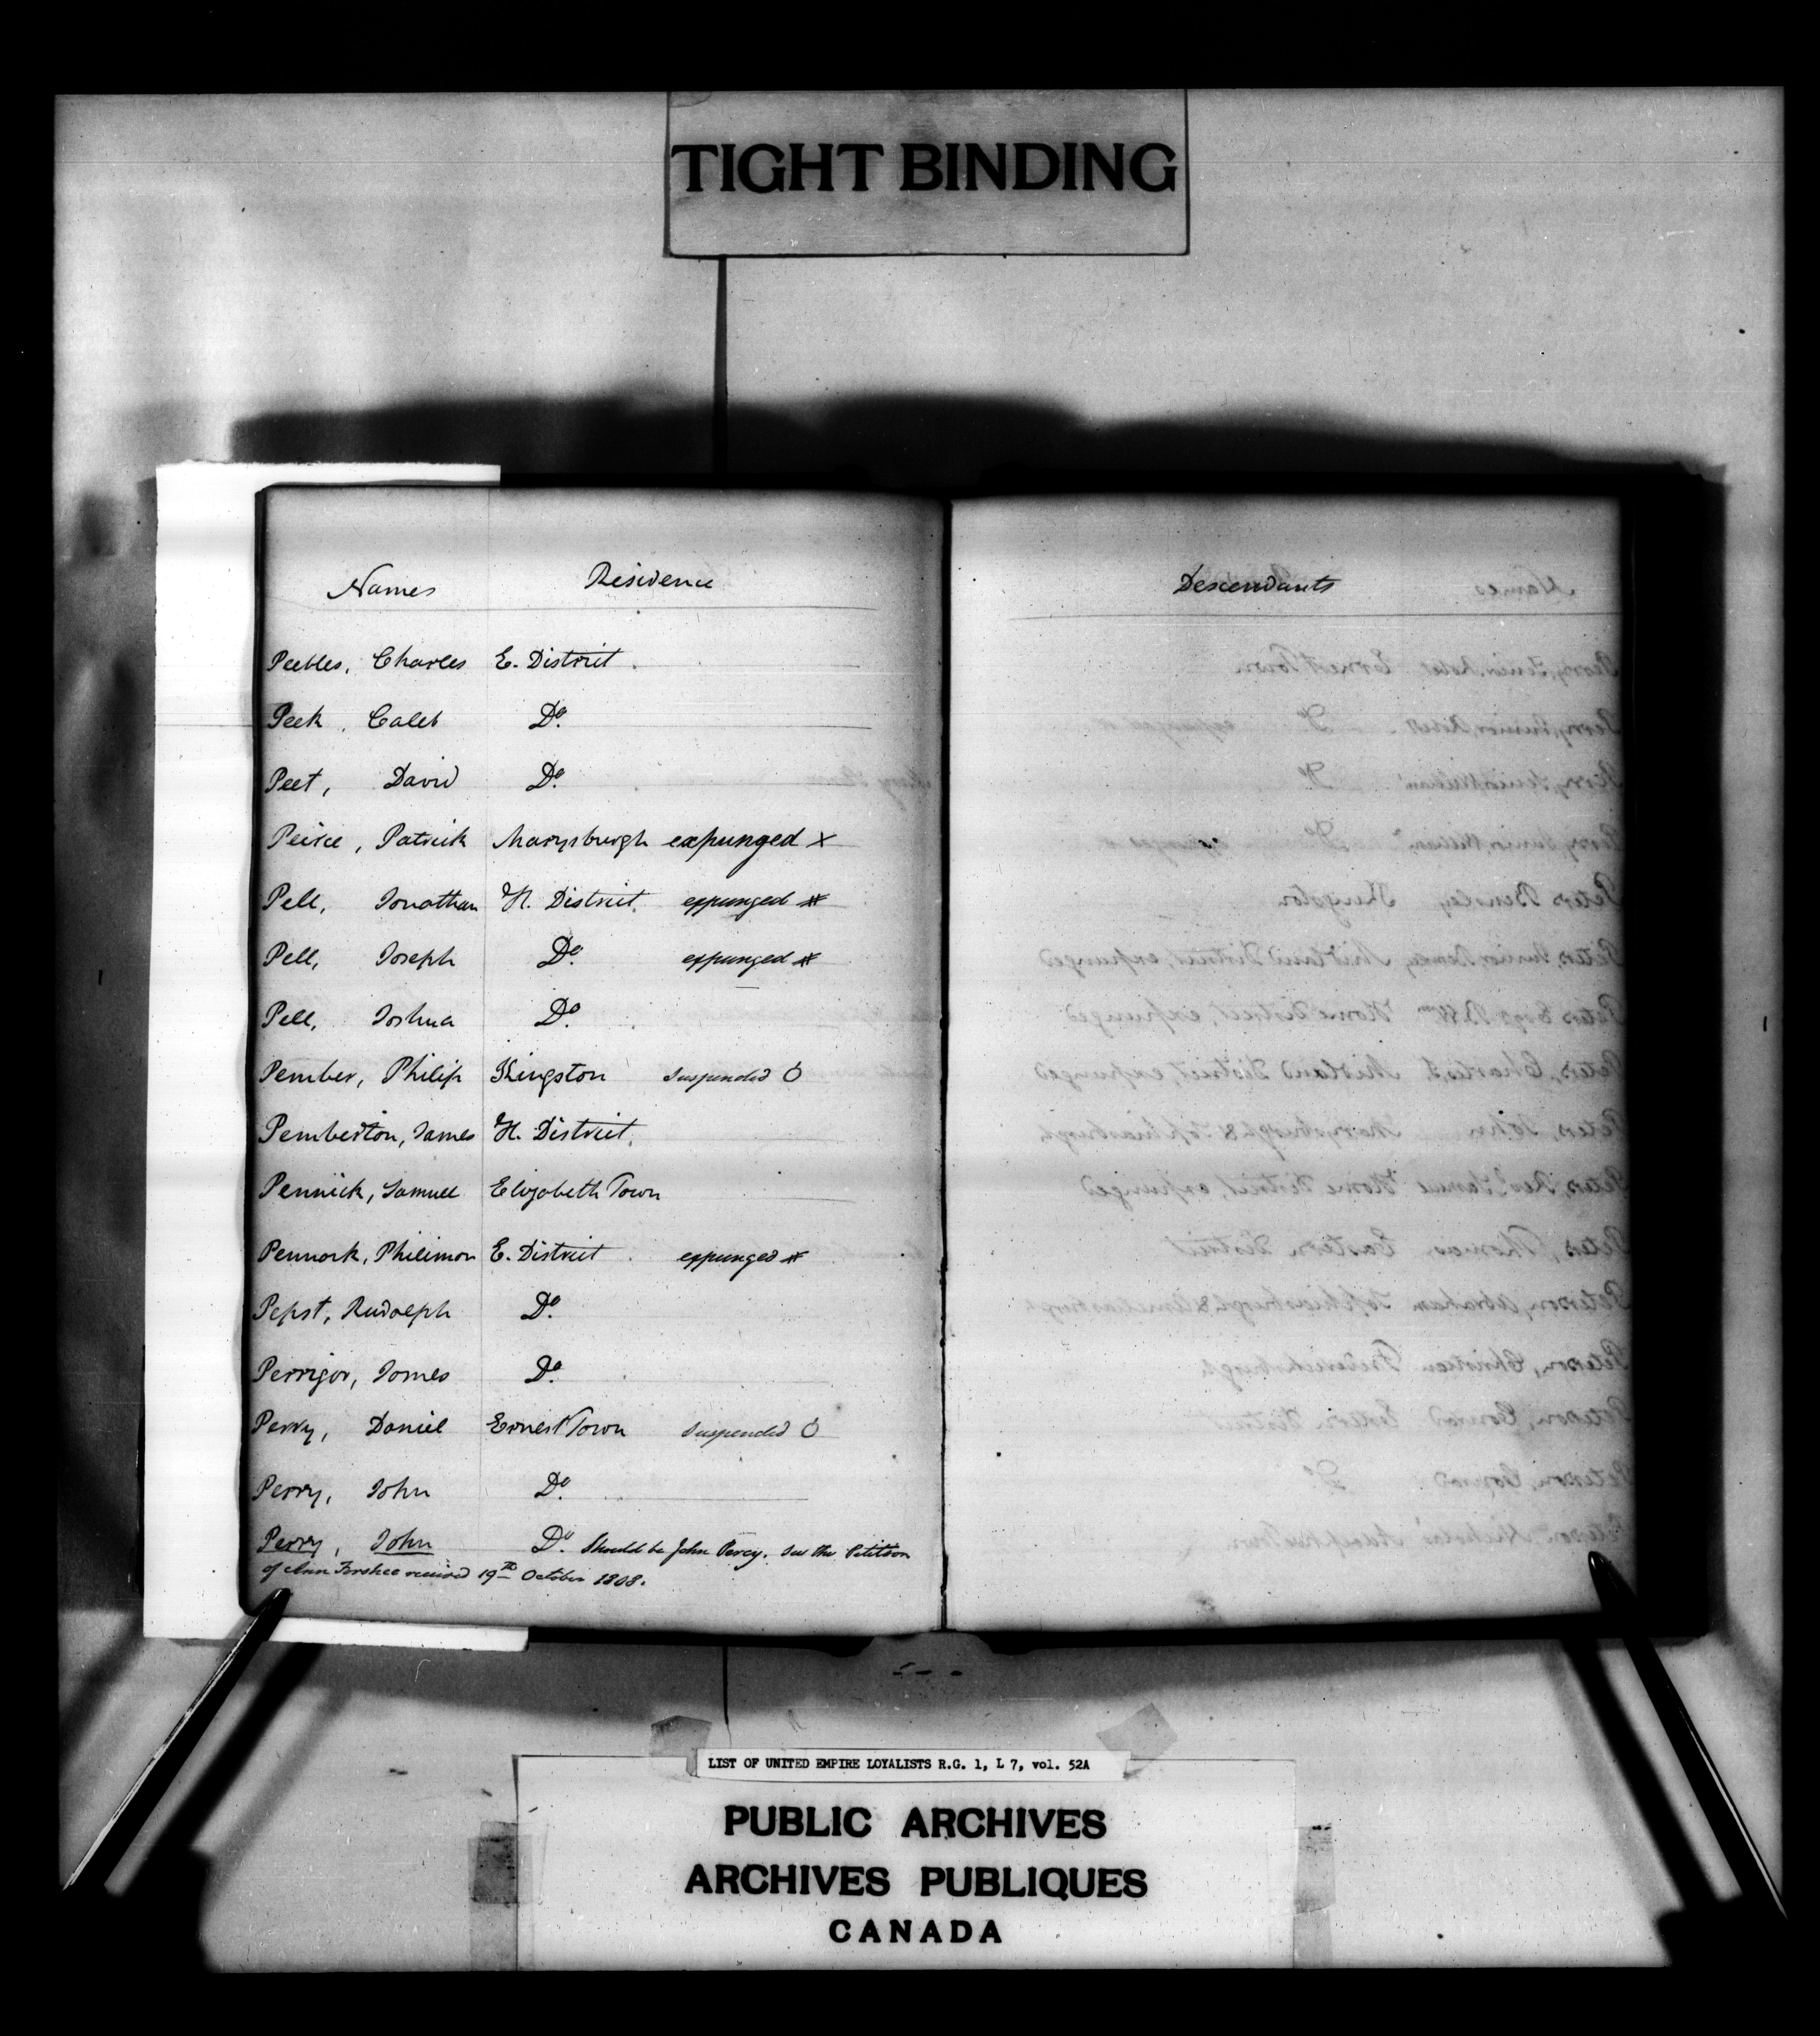 TIGHT BINDING
Names Residence Descendants
Peebles, Charles E. District.
Peek, Caleb Do.
Peet, David Do.
Peirce, Patrick Marysburgh expunged x
Pell, Jonathan H. District. expunged #
Pell, Joseph Do. expunged #
Pell, Joshua Do.
Pember, Philip Kingston suspended O
Pemberton, James H. District.
Pennick, Samuel Elizabeth Town
Pennock, Philimon E. District. expunged #
Pepst, Rudolph Do.
Perrigor, James Do.
Perry, Daniel Ernest Town suspended O
Perry, John Do.
Perry, John Do. Should be John Percy. See the Petition
of Ann Forshee received 19th October 1808.
LIST OF UNITED EMPIRE LOYALISTS R.G. 1, L 7, vol. 52A
PUBLIC ARCHIVES
ARCHIVES PUBLIQUES
CANADA